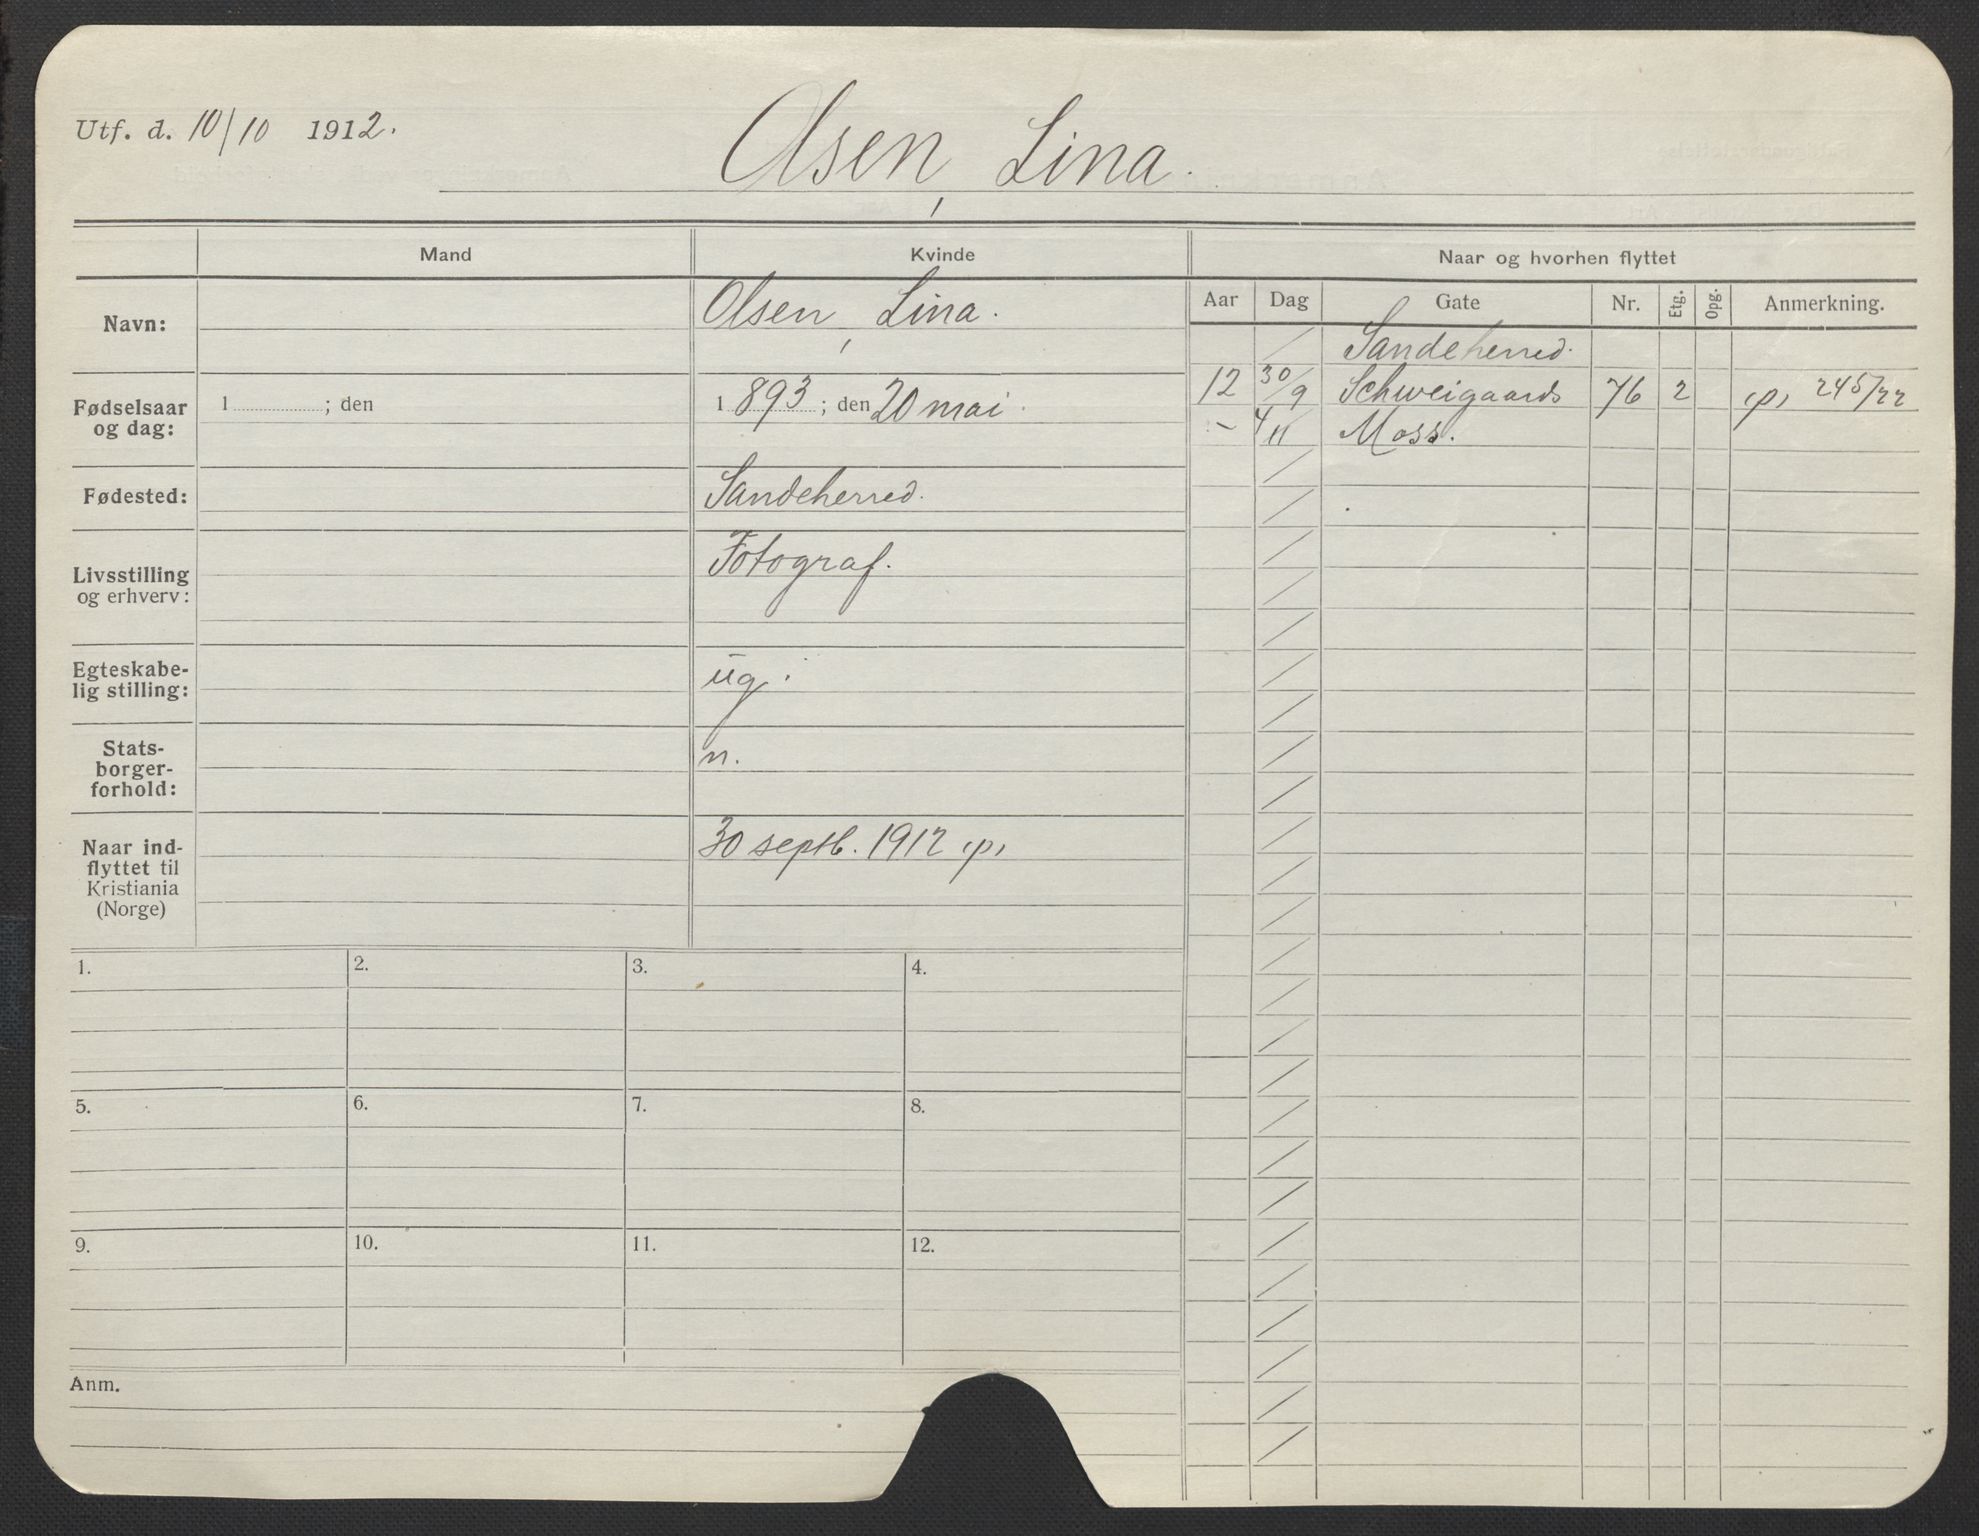 Utf. d. 10/10 1912.
Olsen, Lina.
Mand
Kvinde
Naar og hvorhen flyttet
Aar Dag Gate Nr. Etg. Opg. Anmerkning.
Navn:
Olsen, Lina.
Fødselsaar
og dag:
1 ; den
1893 ; den 20 mai.
Fødested:
Sandeherred.
Livsstilling
og erhverv:
Fotograf.
Egteskabe-
lig stilling:
ug.
Stats-
borger-
forhold:
n.
Naar ind-
flyttet til
Kristiania
(Norge)
30 septb. 1912 (p)
Sandeherred.
12 30/9 Schweigaards 76 2 (p) 245/22
- 4/11 Moss.
1. 2. 3. 4.
5. 6. 7. 8.
9. 10. 11. 12.
Anm.